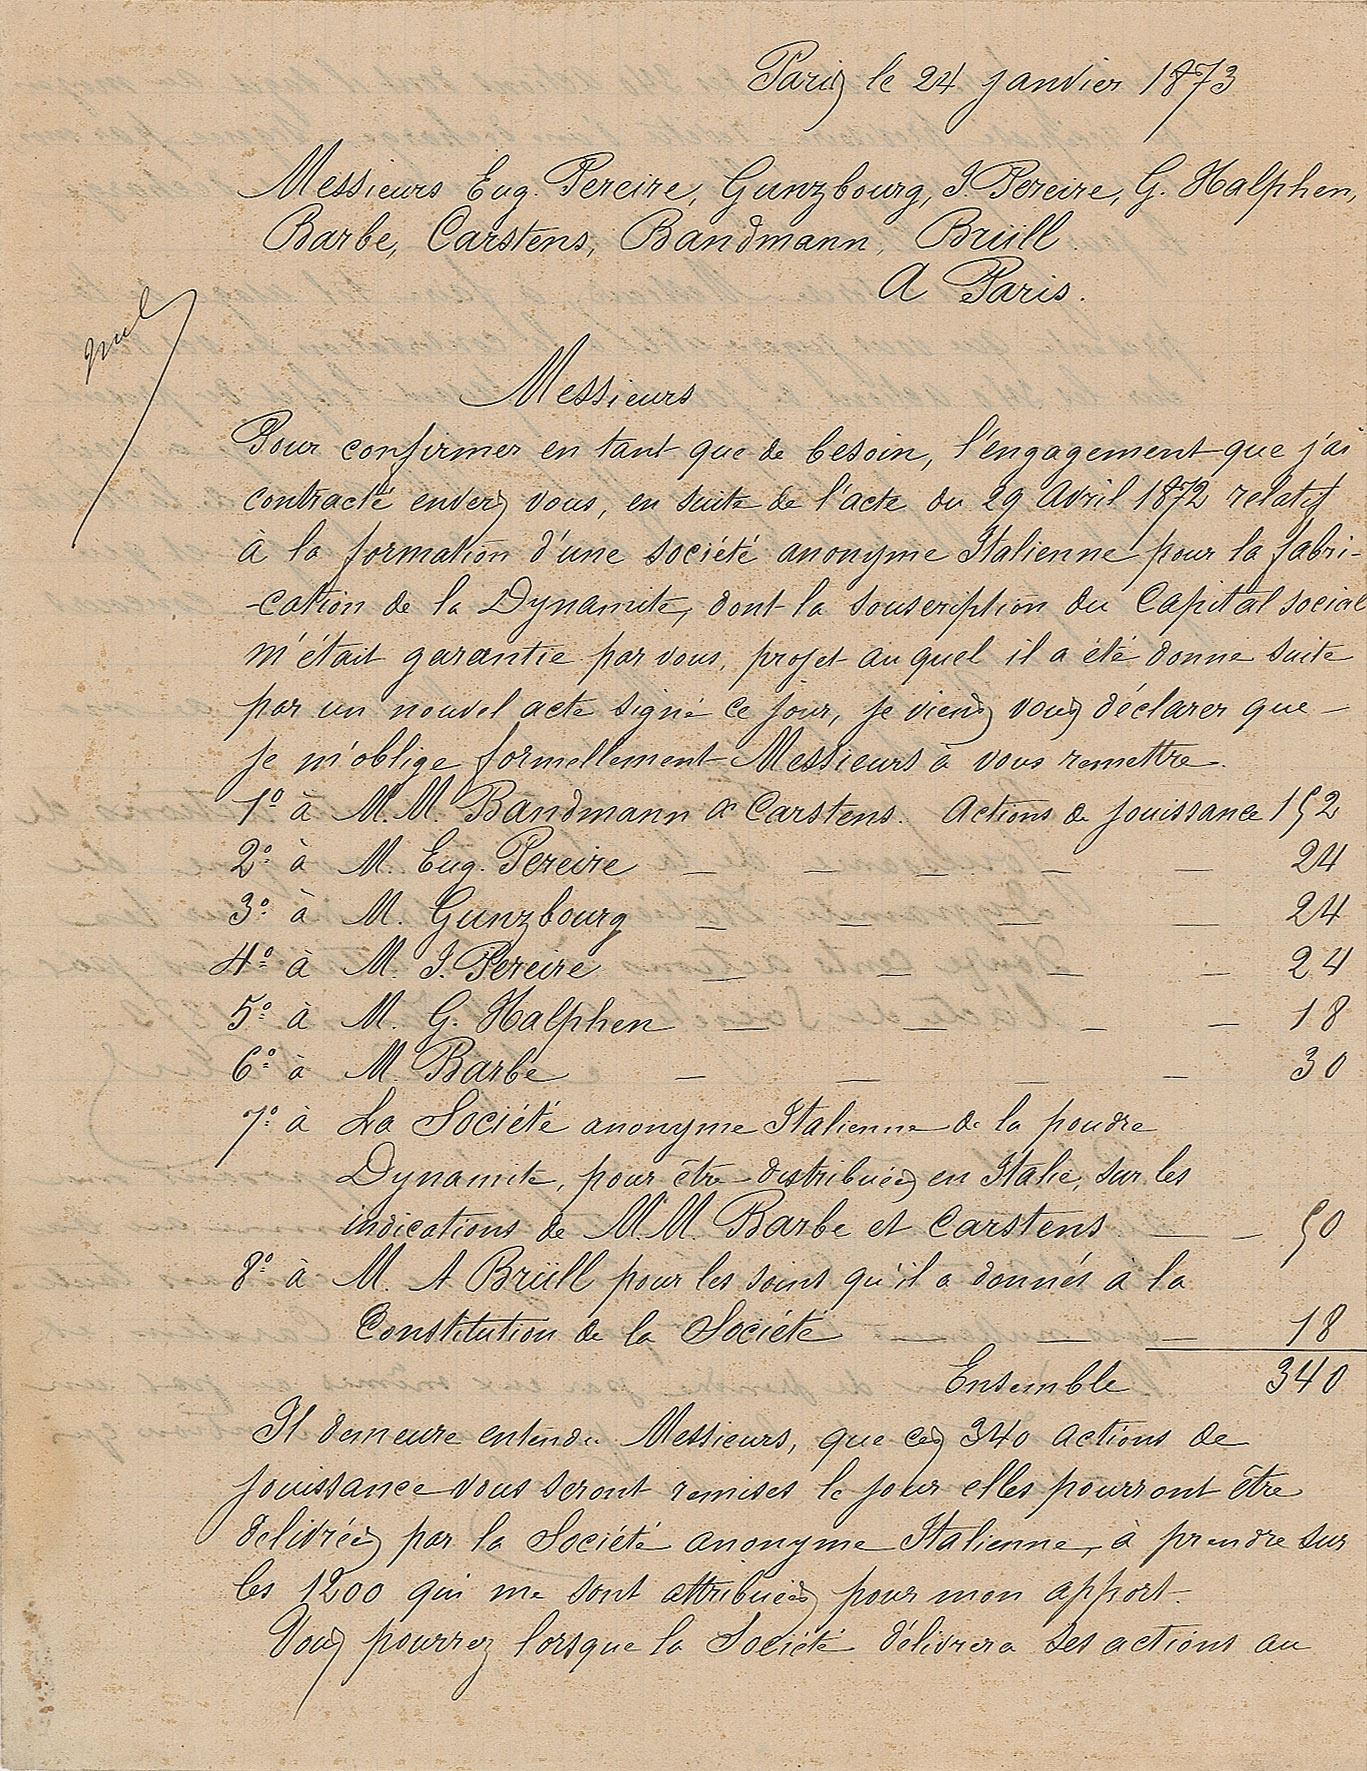 Paris le 24 janvier 1873
Messieurs Eug. Pereire, Gunzbourg, I. Pereire, G. Halphen,
Barbe, Carstens, Bandmann, Brüll.
A Paris.
nul
Messieurs
Pour confirmer en tant que de besoin, l'engagement que j'ai
contracté envers vous, en suite de l'acte du 29 Avril 1872 relatif
à la formation d'une société anonyme Italienne pour la fabri-
-cation de la Dynamite, dont la souscription du Capital social
m'était garantie par vous, projet au quel il a été donné suite
par un nouvel acte signé ce jour, je viens vous déclarer que —
je m'oblige formellement Messieurs à vous remettre.
1º à M.M. Bandmann & Carstens. Actions de jouissance 152
2º à M. Eug. Pereire — — — — — 24
3º à M. Gunzbourg — — — — 24
4º à M. I. Pereire — — — — 24
5º à M. G. Halphen — — — — 18
6º à M. Barbe — — — — 30
7º à La Société anonyme Italienne de la poudre
Dynamite, pour être distribuées en Italie, sur les
indications de M.M. Barbe et Carstens — — 50
8º à M. A Brüll pour les soins qu'il a donnés à la
Constitution de la Société — — — 18
Ensemble 340
Il demeure entendu Messieurs, que ces 340 actions de
jouissance vous seront remises le jour elles pourront être
delivrées par la Société anonyme Italienne, à prendre sur
les 1200 qui me sont attribuées pour mon apport.
Vous pourrez lorsque la Société délivrera ses actions au